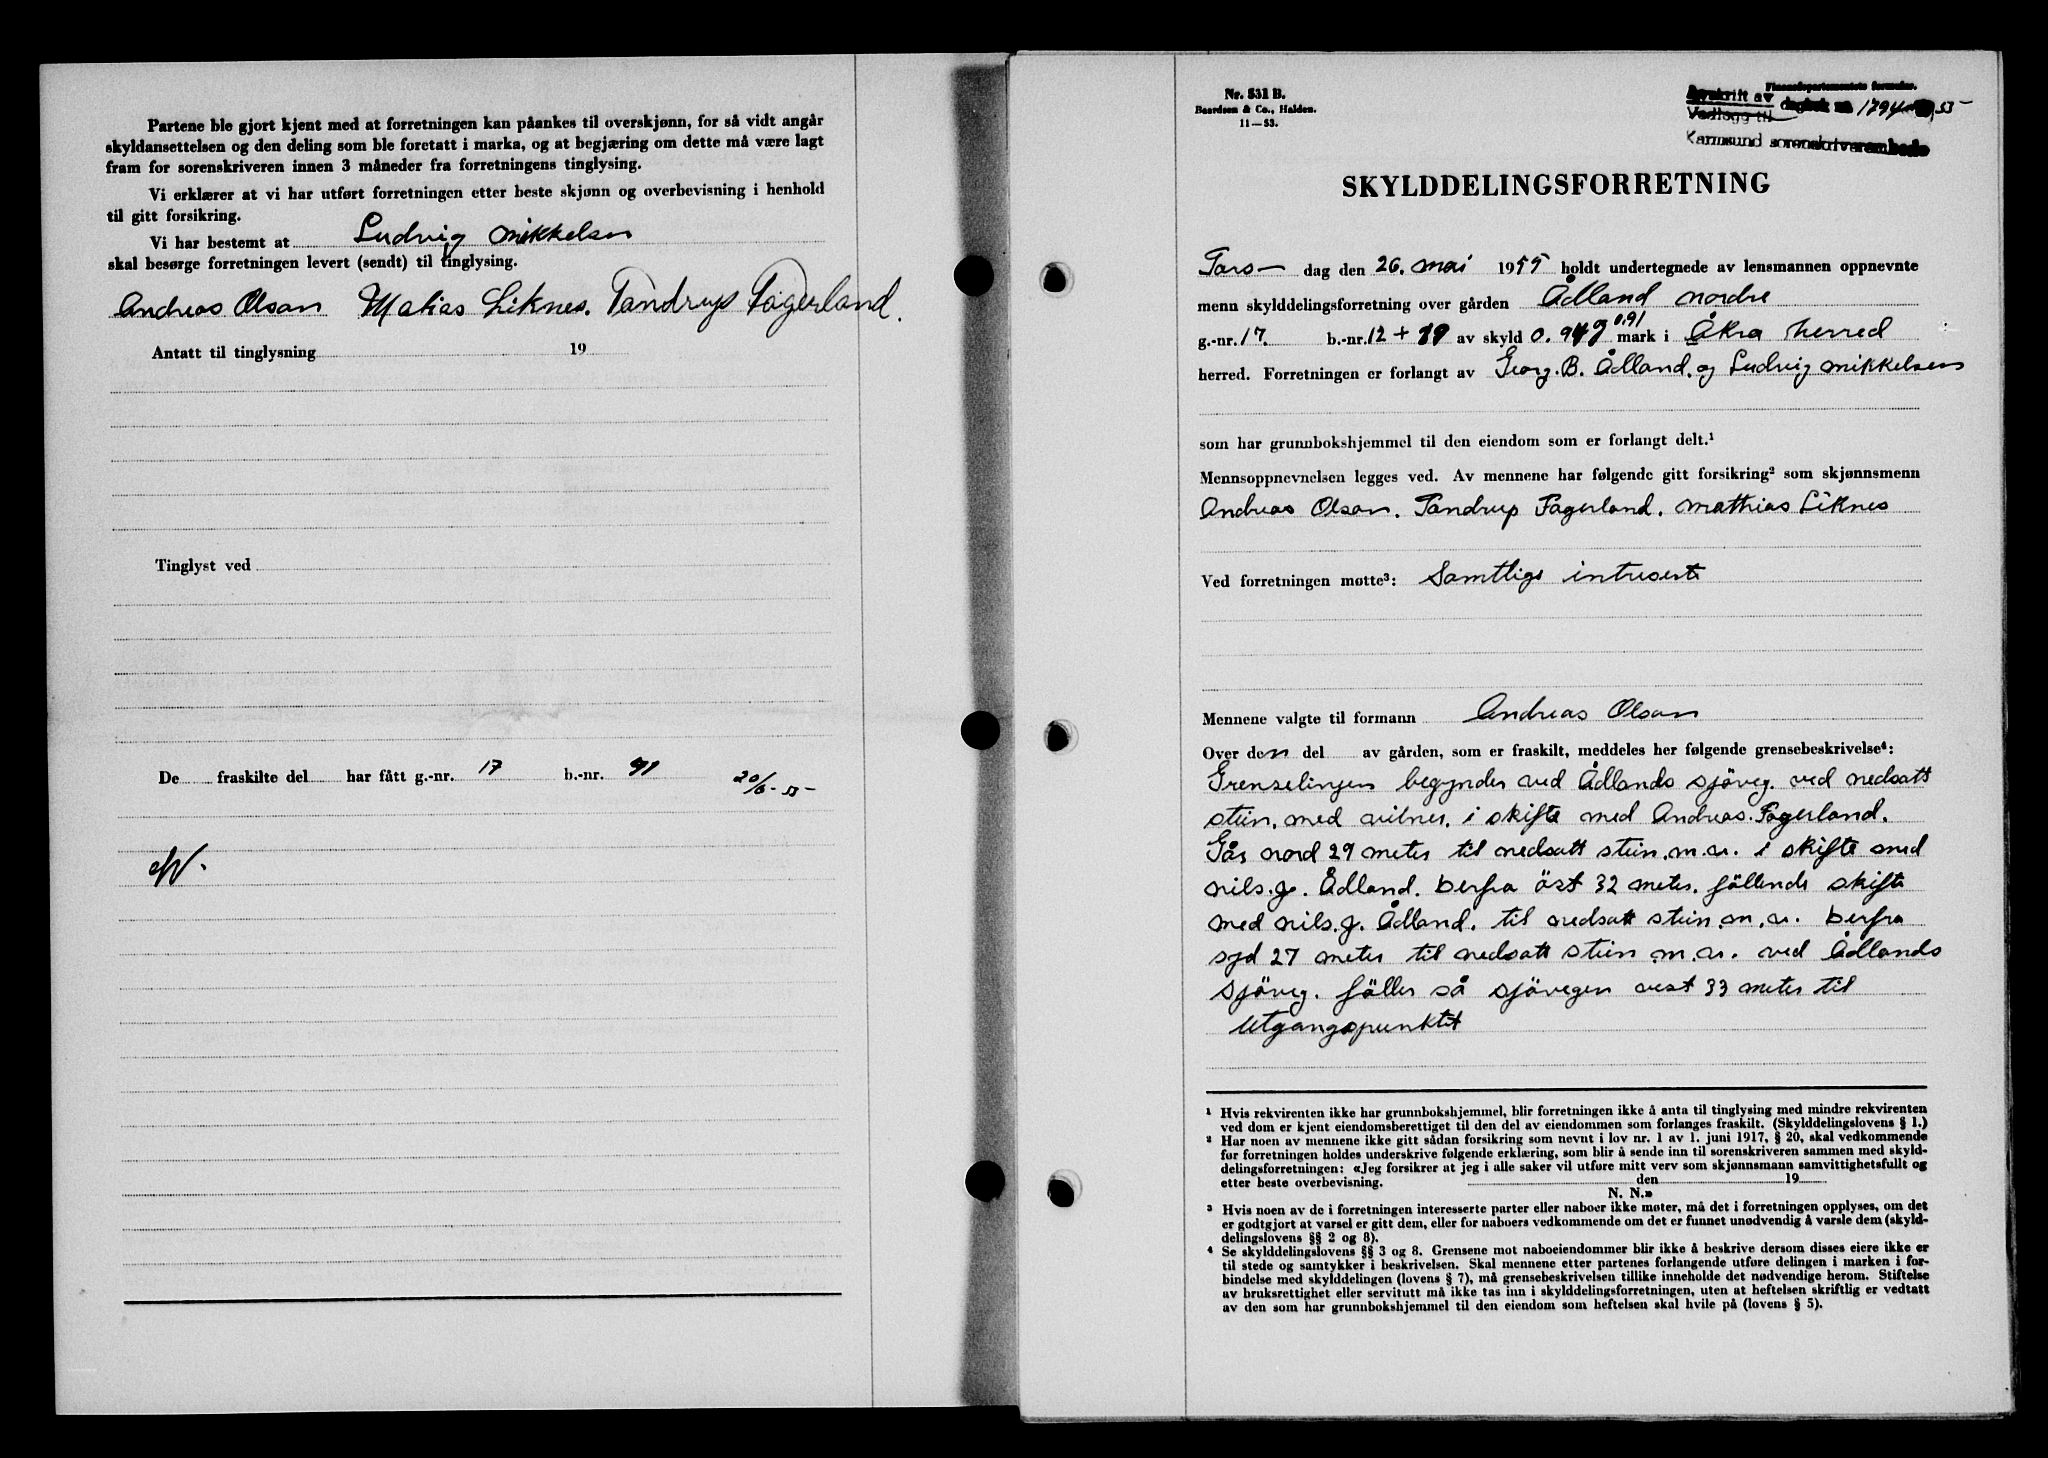 Partene ble gjort kjent med at forretningen kan påankes til overskjønn, for så vidt angår
skyldansettelsen og den deling som ble foretatt i marka, og at begjæring om dette må være lagt
fram for sorenskriveren innen 3 måneder fra forretningens tinglysing.
Vi erklærer at vi har utført forretningen etter beste skjønn og overbevisning i henhold
til gitt forsikring.
Vi har bestemt at Ludvig Mikkelsen
skal besørge forretningen levert (sendt) til tinglysing.
Andreas Olsen Matias Liknes. Tandrup Fagerland.
Antatt til tinglysning 19
Tinglyst ved
De fraskilte del har fått g.-nr. 17 b.-nr. 91 20/6-55-
Nr. 531 B.
Baardsen & Co., Halden.
11—53.
Finansdepartementets formular.
Avskrift av
Vedlegg til dagbok nr. 1794 55-
Karmsund sorenskriverembede
SKYLDDELINGSFORRETNING
Tors- dag den 26. mai 1955 holdt undertegnede av lensmannen oppnevnte
menn skylddelingsforretning over gården Ådland nordre
g.-nr. 17. b.-nr. 12 + 19 av skyld 0.91 mark i Åkra herred
herred. Forretningen er forlangt av Georg. B. Ådland. og Ludvig Mikkelsen
som har grunnbokshjemmel til den eiendom som er forlangt delt.¹
Mennsoppnevnelsen legges ved. Av mennene har følgende gitt forsikring² som skjønnsmenn
Andreas Olsen. Tandrup Fagerland. Mathias Liknes
Ved forretningen møtte³: Samtlige intreserte
Mennene valgte til formann Andreas Olsen
Over den del av gården, som er fraskilt, meddeles her følgende grensebeskrivelse⁴:
Grenselinjen begynder ved Ådlands sjöveg. ved nedsatt
stein. med vitner. i skifte med Andreas. Fagerland.
Går nord 29 meter til nedsatt stein. m. v. i skifte med
Nils. J. Ådland. Derfra öst 32 meter. föllende skifte
med Nils. J. Ådland. til nedsatt stein. m. v. Derfra
syd 27 meter til nedsatt stein m. v. ved Ådlands
Sjöveg. föller så sjövegen vest 33 meter til
utgangspunktet
¹ Hvis rekvirenten ikke har grunnbokshjemmel, blir forretningen ikke å anta til tinglysing med mindre rekvirenten
ved dom er kjent eiendomsberettiget til den del av eiendommen som forlanges fraskilt. (Skylddelingslovens § 1.)
² Har noen av mennene ikke gitt sådan forsikring som nevnt i lov nr. 1 av 1. juni 1917, § 20, skal vedkommende
før forretningen holdes underskrive følgende erklæring, som blir å sende inn til sorenskriveren sammen med skyld-
delingsforretningen: «Jeg forsikrer at jeg i alle saker vil utføre mitt verv som skjønnsmann samvittighetsfullt og
etter beste overbevisning. den 19
N. N.»
³ Hvis noen av de i forretningen interesserte parter eller naboer ikke møter, må det i forretningen opplyses, om det
er godtgjort at varsel er gitt dem, eller for naboers vedkommende om det er funnet unødvendig å varsle dem (skyld-
delingslovens §§ 2 og 8).
⁴ Se skylddelingslovens §§ 3 og 8. Grensene mot naboeiendommer blir ikke å beskrive dersom disses eiere ikke er
til stede og samtykker i beskrivelsen. Skal mennene etter partenes forlangende utføre delingen i marken i for-
bindelse med skylddelingen (lovens § 7), må grensebeskrivelsen tillike inneholde det nødvendige herom. Stiftelse
av bruksrettighet eller servitutt må ikke tas inn i skylddelingsforretningen, uten at heftelsen skriftlig er vedtatt
av den som har grunnbokshjemmel til den eiendom som heftelsen skal hvile på (lovens § 5).